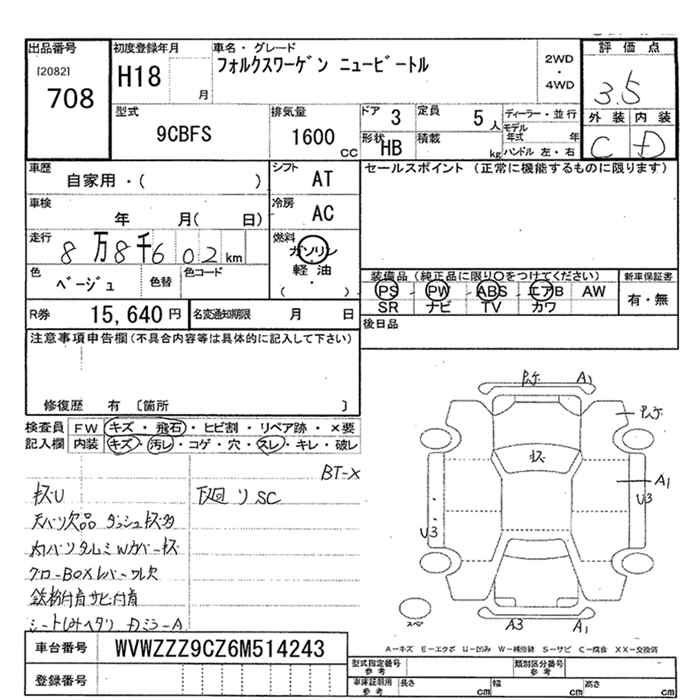 出品番号
[2082]
708
初度登録年月
H18
月
車名・グレード
フォルクスワーゲン ニュービートル
2WD
・
4WD
評価点
3.5
外装 内装
C D
型式
9CBFS
排気量
1600
cc
ドア 3
定員 5 人
形状 HB
積載 kg
ディーラー・並行
モデル年式 年
ハンドル 左・右
車歴
自家用・( )
シフト
AT
車検
年 月( 日)
冷房
AC
走行
8万8千602 km
燃料
ガソリン
・
軽油
・
( )
色
ベージュ
色替
色コード
R券 15,640 円
名変通知期限 月 日
セールスポイント (正常に機能するものに限ります)
装備品 (純正品に限り○をつけてください)
PS PW ABS エアB AW
SR ナビ TV カワ
新車保証書
有・無
後日品
注意事項申告欄(不具合内容等は具体的に記入して下さい)
修復歴 有 〔箇所 〕
検査員
記入欄
FW キズ・飛石・ヒビ割・リペア跡・×要
内装 キズ・汚レ・コゲ・穴・スレ・キレ・破レ
BT-X
キズU
下廻リSC
内バリタルミWカバーキズ
グローBOXレバーワレ欠
鉄粉付着サビ付着
A1
キズ
A1
U3
U3
A3
A1
スペ
A-キズ E-エクボ U-凹み W-補修跡 S-サビ C-腐食 XX-交換済
車台番号 WVWZZZ9CZ6M514243
登録番号
型式指定番号
参考
類別区分番号
参考
車庫証明用
参考
長さ cm
幅 cm
高さ cm